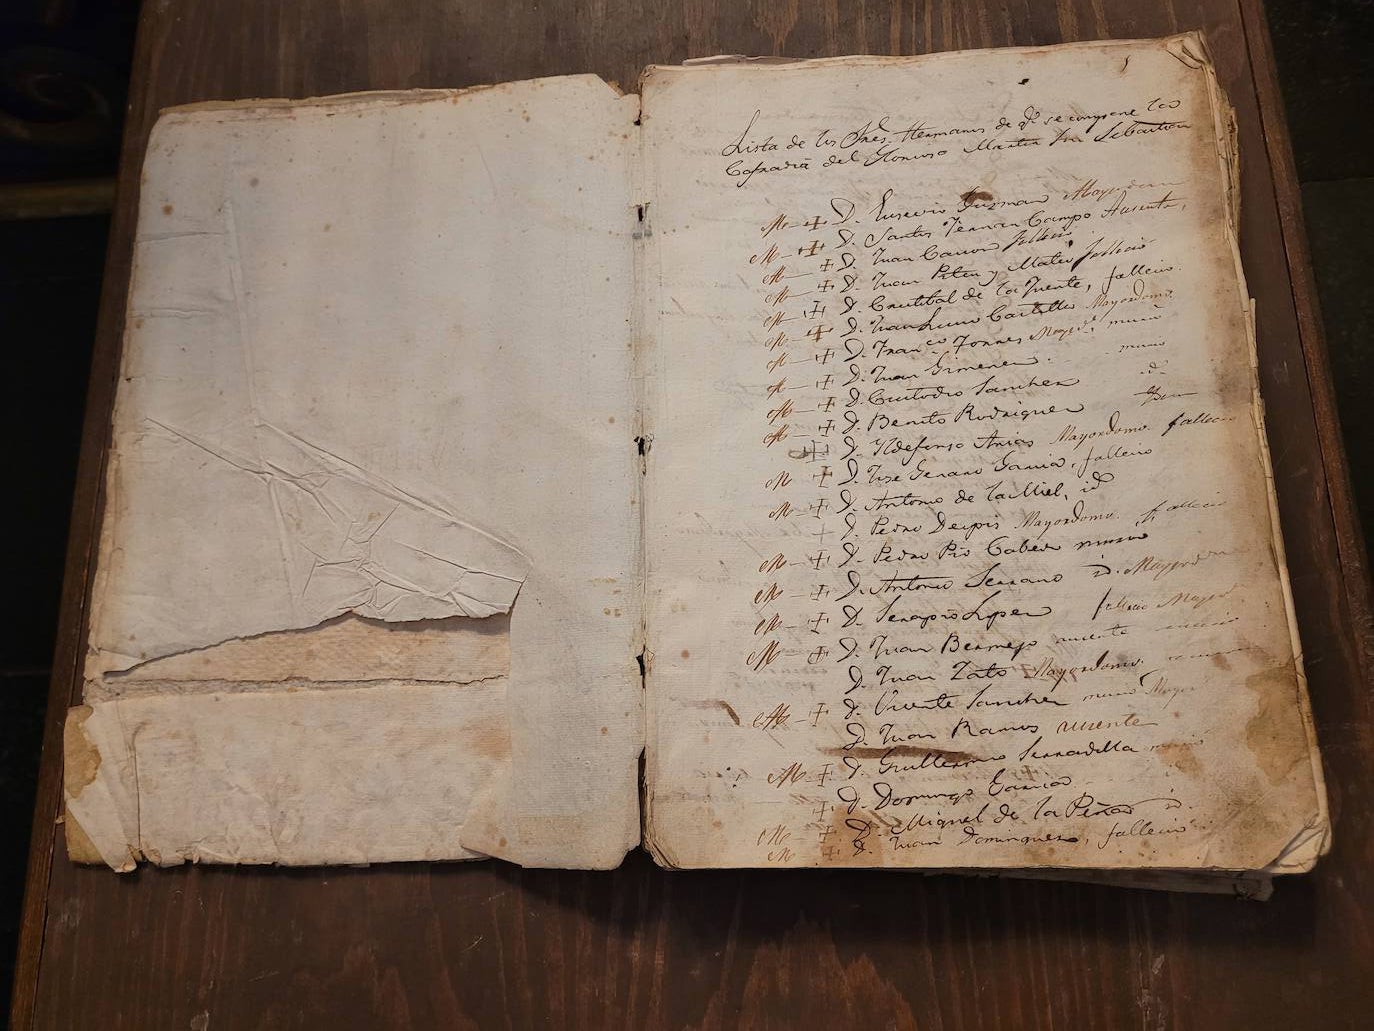 Lista de los Sres. Hermanos de qe. se compone la
Cofradia del Glorioso Martir Sn Sebastian
M - + D. Eusevio Guzman Mayordomo
M - + D. Santos Fernan Campo Ausente,
M - + D. Juan Carron fallecio
M - + D. Juan Perez y Mateo fallecio
M - + D. Cristibal de la Fuente, fallecio.
M - + D. Juan Castillo Mayordomo.
M - + D. Franco. Torres Mayordo. murio
M - + D. Juan Gimenez. murio
M - + D. Custodio Sanchez id.
M - + D. Benito Rodriguez
+ D. Ildefonso Arias Mayordomo. fallecio
M + D. Jose Genaro Garcia, fallecio
M - + D. Antonio de la Miel, id
+ D. Pedro Mayordomo. fallecio
M - + D. Pedro Pio murio
M - + D. Antonio Serrano id. Mayord
M - + D. Serapio Lopez fallecio Mayord
M - + D. Juan Bermejo ausente murio
D. Juan Zato Mayordomo.
M - + D. Vicente Sanchez murio Mayor
D. Juan Ramos ausente
M - + D. Guillermo Serradilla murio
+ D. Domingo Garcia
M - + D. Miguel de la Peña id.
M + D. Juan Dominguez, fallecio